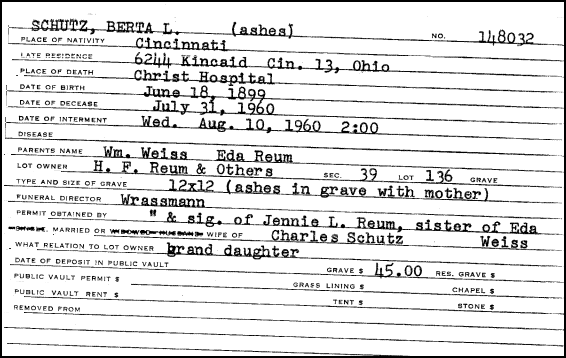 SCHUTZ, BERTA L. (ashes) NO. 148032
PLACE OF NATIVITY Cincinnati
LATE RESIDENCE 6244 Kincaid Cin. 13, Ohio
PLACE OF DEATH Christ Hospital
DATE OF BIRTH June 18, 1899
DATE OF DECEASE July 31, 1960
DATE OF INTERMENT Wed. Aug. 10, 1960 2:00
DISEASE
PARENTS NAME Wm. Weiss Eda Reum
LOT OWNER H. F. Reum & Others SEC. 39 LOT 136 GRAVE
TYPE AND SIZE OF GRAVE 12x12 (ashes in grave with mother)
FUNERAL DIRECTOR Wrassmann
PERMIT OBTAINED BY " & sig. of Jennie L. Reum, sister of Eda
SINGLE, MARRIED OR WIDOWED HUSBAND WIFE OF Charles Schutz Weiss
WHAT RELATION TO LOT OWNER grand daughter
DATE OF DEPOSIT IN PUBLIC VAULT GRAVE $ 45.00 RES. GRAVE $
PUBLIC VAULT PERMIT $ GRASS LINING $ CHAPEL $
PUBLIC VAULT RENT $ TENT $ STONE $
REMOVED FROM